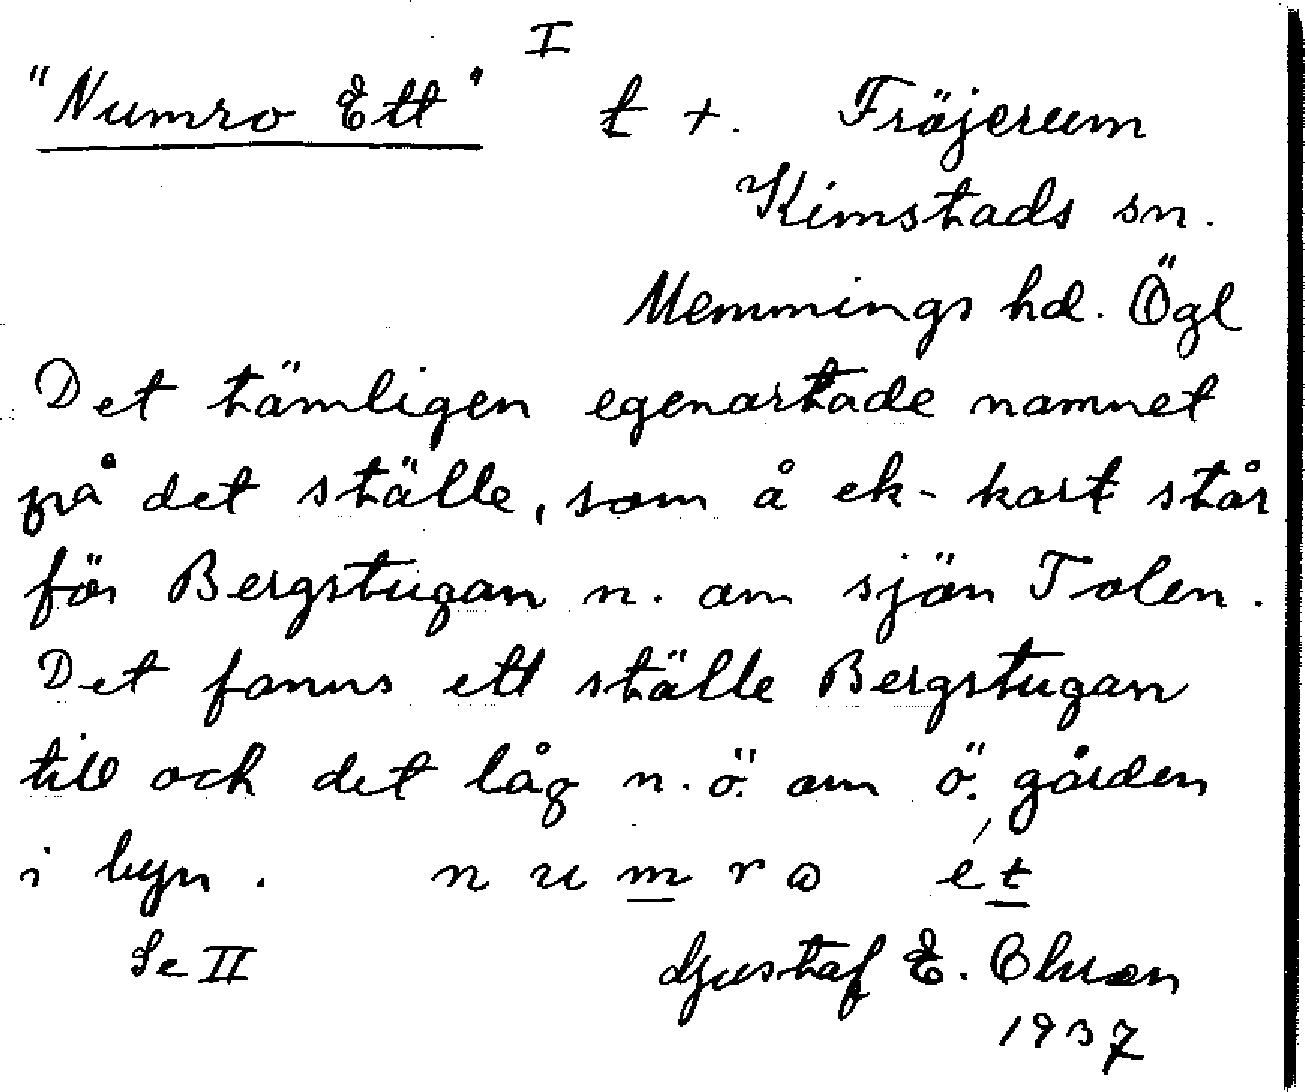 I
"Numro Ett" t +. Fröjerum
Kimstads sn.
Memmings hd. Ögl
Det tämligen egenartade namnet
på det ställe, som å ek-kart står
för Bergstugan n. om sjön Tolen.
Det fanns ett ställe Bergstugan
till och det låg n.ö. om ö. gården
i byn. numro ét
Se II Gustaf E.
1937